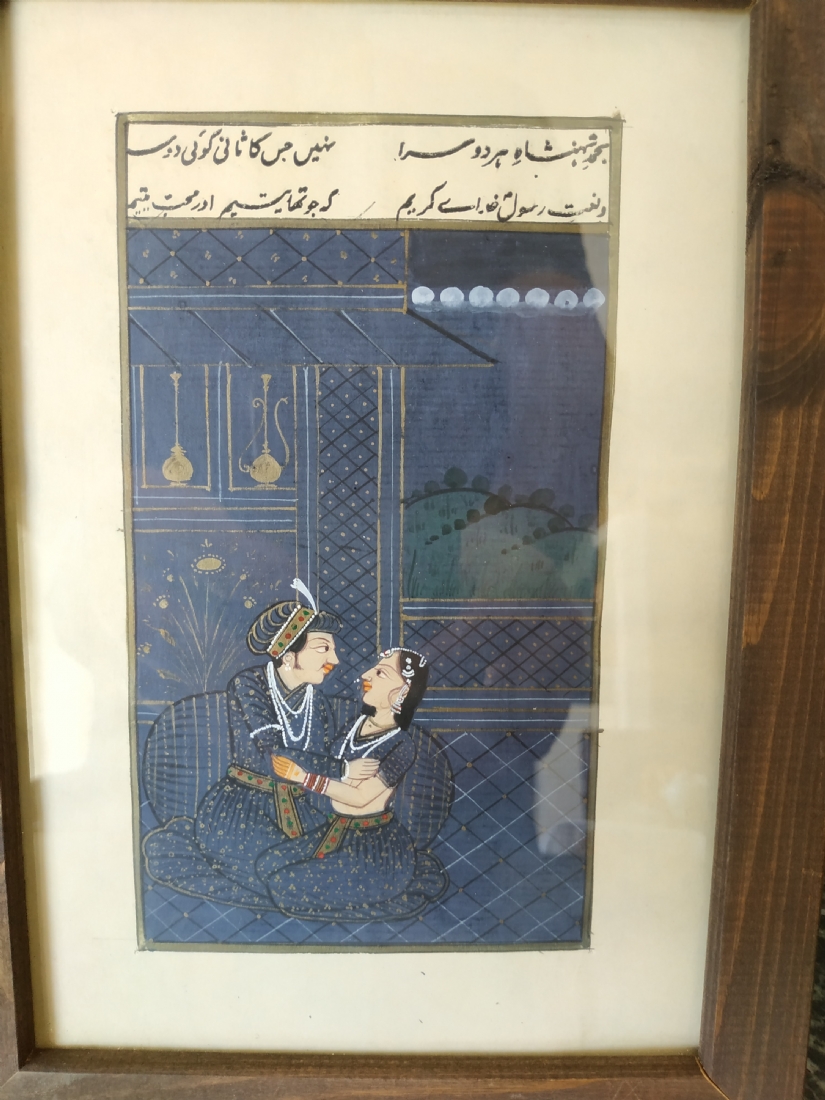 بحمدِ شہنشاہِ ہر دوسرا نہیں جس کا ثانی کوئی دوسـ
و نعت رسولِ خدا اے کریم کہ جو تھا یتیم اور محبِّ یتیم